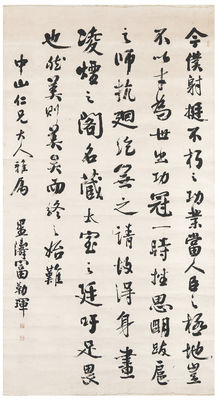 今僕射挺不朽之功業當人臣之極地豈
不以才為世出功冠一時挫思明跋扈
之師抗廻紇無之請故得身畫
凌煙之閣名藏太室之廷吁足畏
也然美則美矣而終之始難
中山仁兄大人雅屬
濤富勒琿